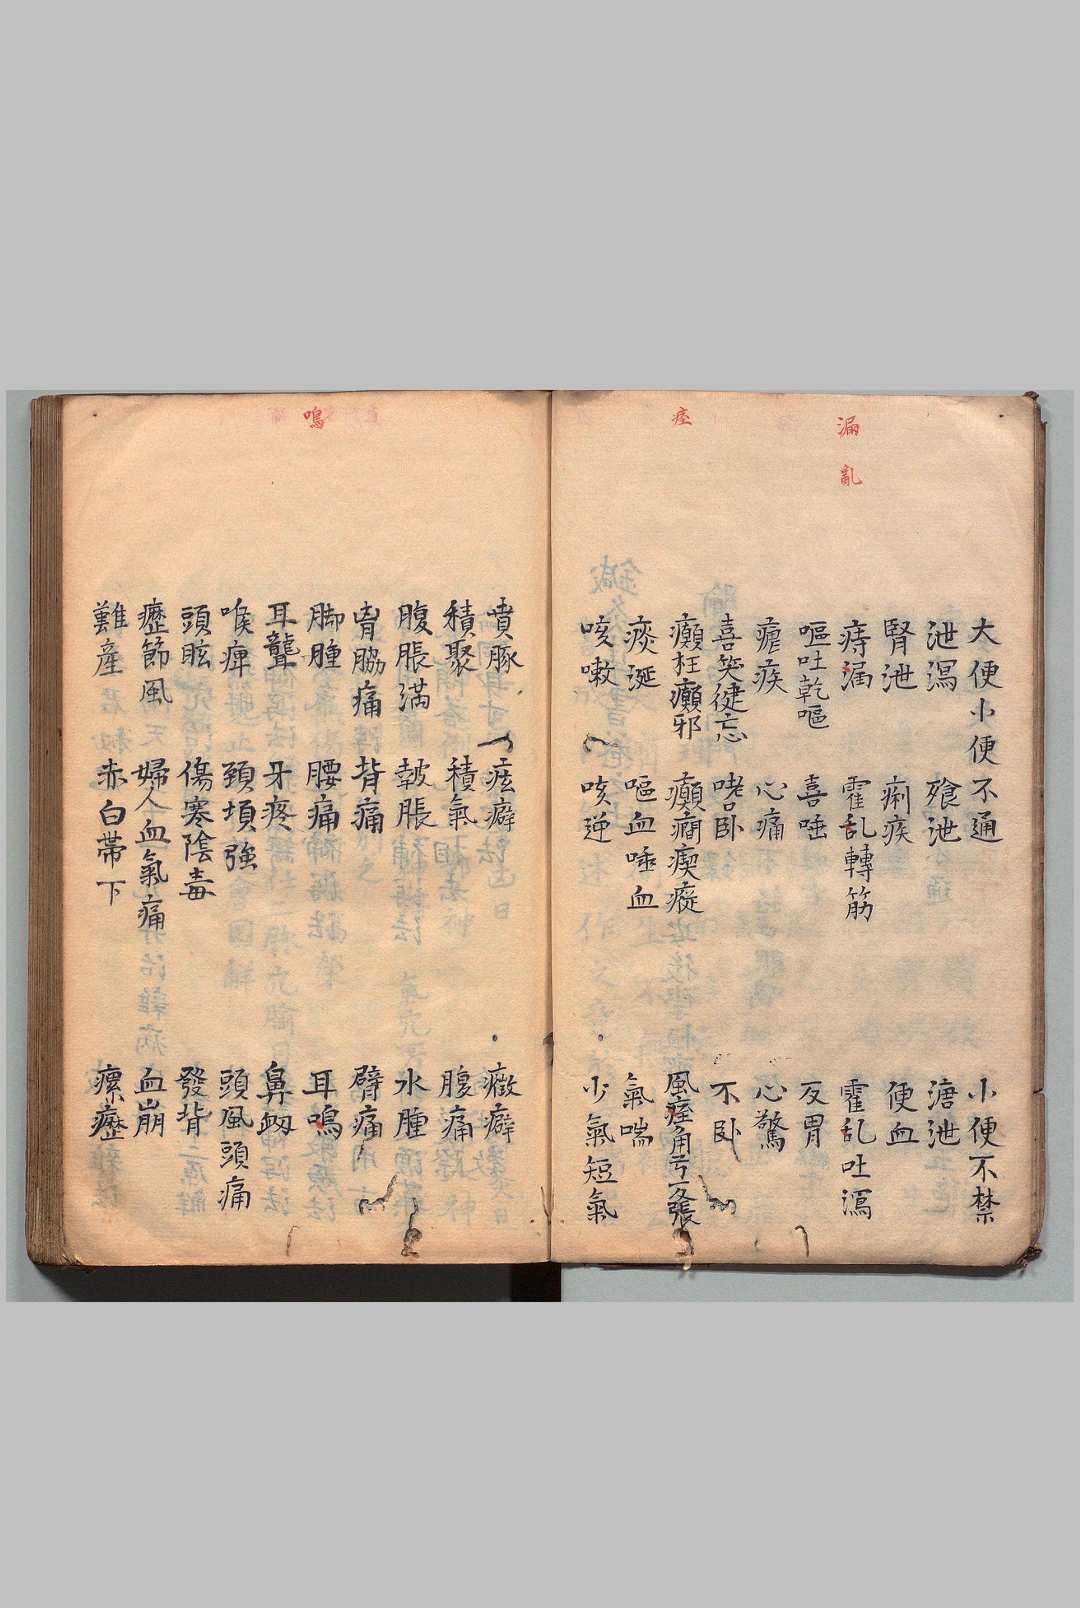 漏
亂
痓
大便小便不通 小便不禁
泄瀉 飧泄 溏泄
腎泄 痢疾 便血
痔漏 霍乱轉筋 霍乱吐瀉
嘔吐乾嘔 喜唾 反胃
瘧疾 心痛 心驚
喜笑健忘 嗜卧 不卧
癲狂癲邪 癲癇瘈瘲 風痓角弓反張
痰涎 嘔血唾血 氣喘
咳嗽 咳逆 少氣短氣
鳴
賁豚 痃癖 癥癖
積聚 積氣 腹痛
腹脹滿 皷脹 水腫
胷脇痛 背痛 臂痛
脚腫 腰痛 耳鳴
耳聾 牙疼 鼻衂
喉痺 頸項強 頭風頭痛
頭眩 傷寒陰毒 發背
癧節風 婦人血氣痛 血崩
難產 赤白帶下 瘰癧